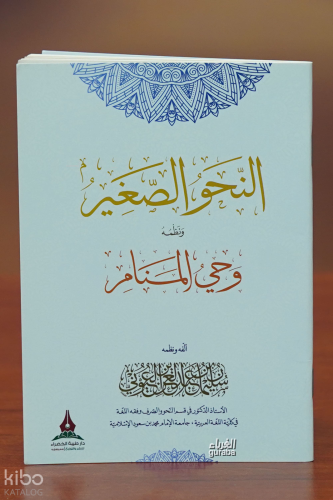 النَّحْوُ الصَّغِيْرُ
وَنَظْمُهُ
وَحْيُ المَنَامِ
ألفه ونظمه
سليمان بن عبد العزيز العيوني
الأستاذ الدكتور في قسم النحو والصرف وفقه اللغة
في كلية اللغة العربية ، جامعة الإمام محمد بن سعود الإسلامية
دار طيبة الخضراء
الغرباء
guraba
kibo
KATALOG